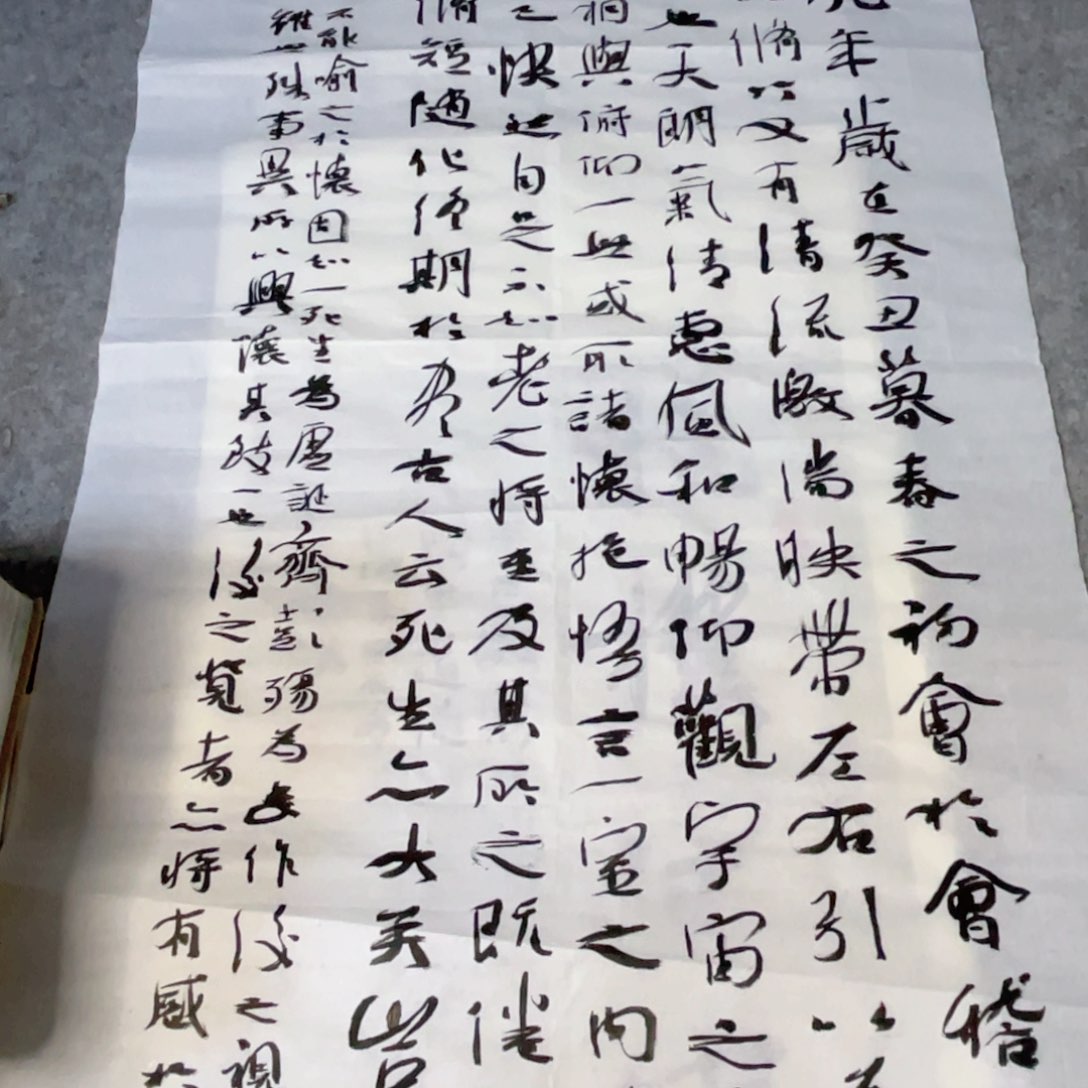 年歲在癸丑暮春之初會於會稽
脩竹又有清流激湍映帶左右引以
也天朗氣清惠風和暢仰觀宇宙之
相與俯仰一世或取諸懷抱悟言一室之內
己快然自足不知老之將至及其所之既倦
脩短隨化終期於盡古人云死生亦大矣豈
不能喻之於懷固知一死生為虛誕齊彭殤為妄作後之視
雖世殊事異所以興懷其致一也後之覽者亦將有感於